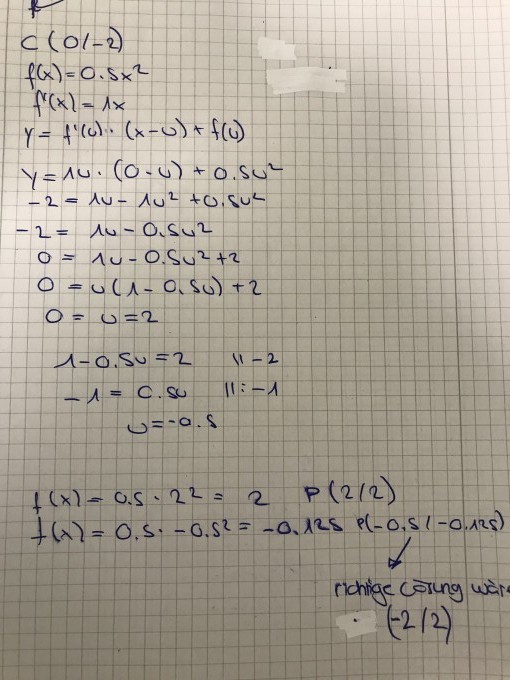 C (0/-2)
f(x) = 0.5x²
f'(x) = 1x
y = f'(u) · (x-u) + f(u)
y = 1u · (0-u) + 0.5u²
-2 = 1u - 1u² + 0.5u²
-2 = 1u - 0.5u²
0 = 1u - 0.5u² + 2
0 = u(1 - 0.5u) + 2
0 = u = 2
1 - 0.5u = 2 || -2
-1 = 0.5u || : -1
u = -0.5
f(x) = 0.5 · 2² = 2 P(2/2)
f(x) = 0.5 · -0.5² = -0.125 P(-0.5/-0.125)
richtige Lösung wäre
(-2/2)